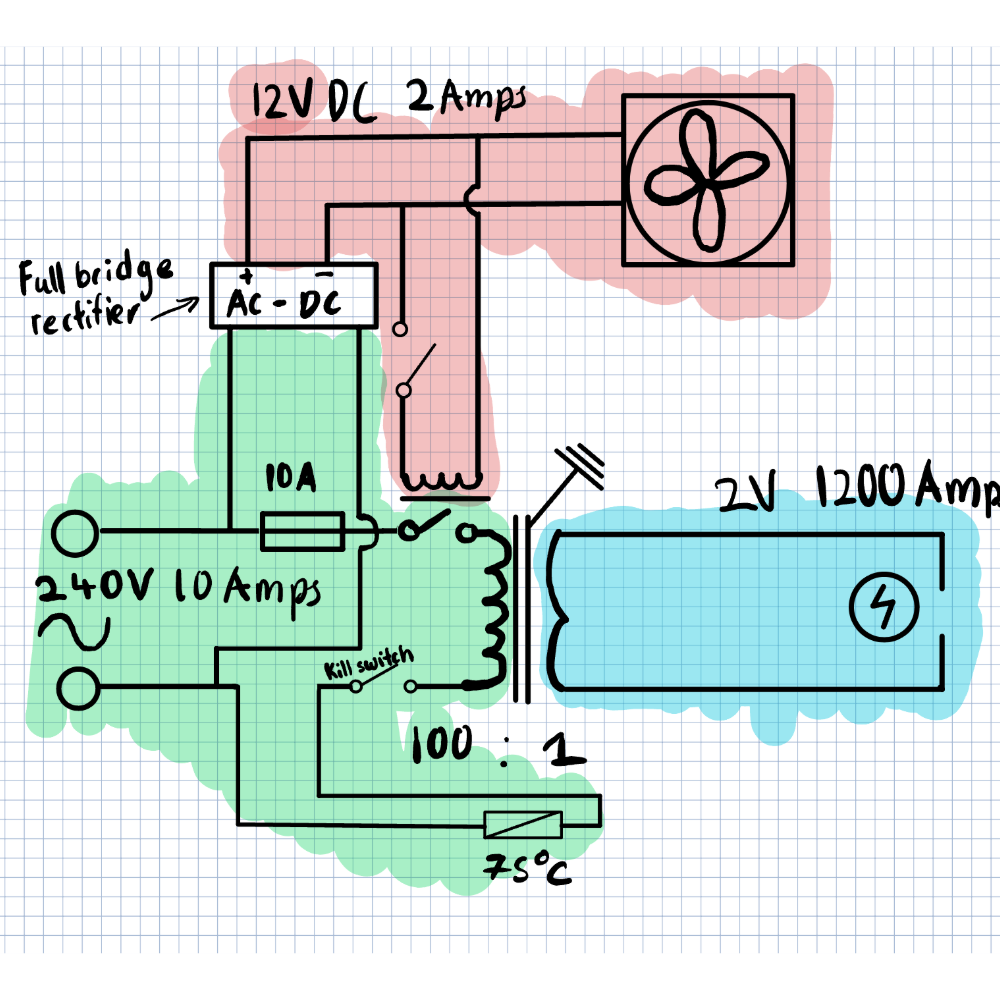 12V DC 2 Amps
Full bridge
rectifier
+ −
AC - DC
10A
2V 1200 Amp
240V 10 Amps
Kill switch
100 : 1
75°C